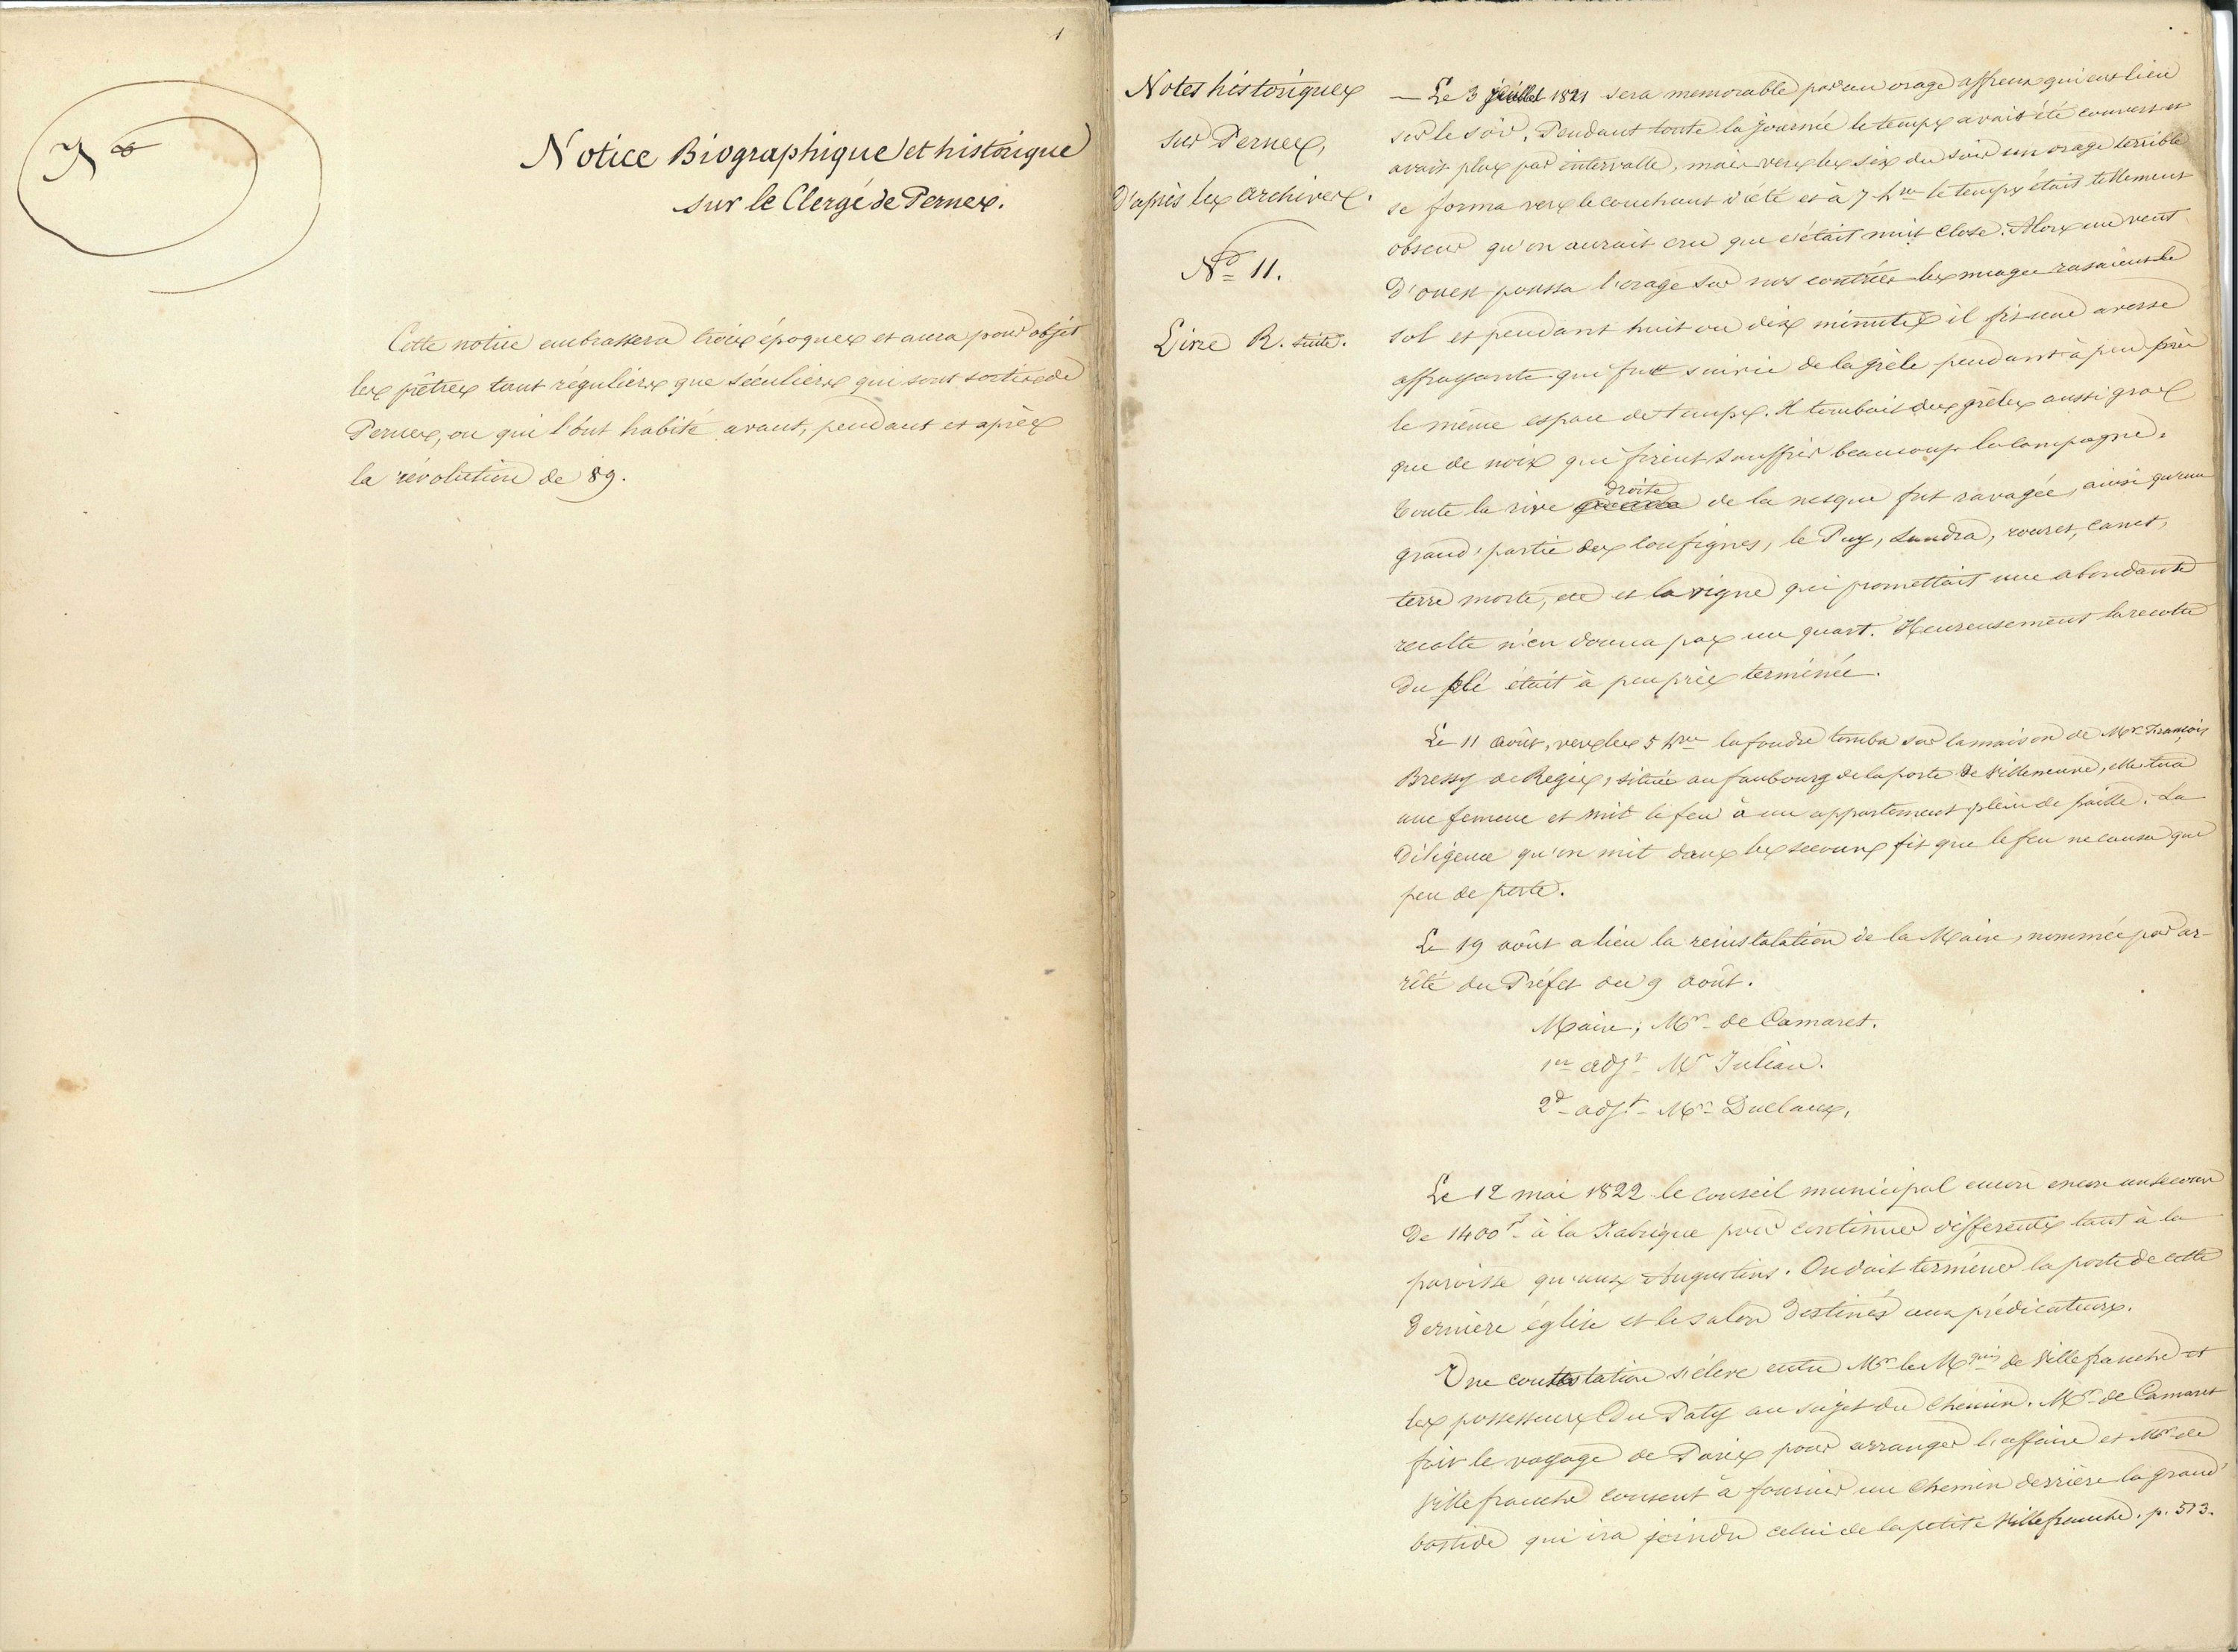 1
Notice Biographique et historique
sur le Clergé de Pernes.
Cette notice embrassera trois époques et aura pour objet
les prêtres tant réguliers que séculiers qui sont sortis de
Pernes, ou qui l'ont habité avant, pendant et après
la révolution de 89.
Notes historiques
sur Pernes,
d'après les archives.
No 11.
Livre R. suite.
— Le 3 juillet 1821 sera memorable par un orage affreux qui eut lieu
sur le soir. Pendant toute la journée le temps avait été couvert et
avait plu par intervalle, mais vers les six du soir un orage terrible
se forma vers le couchant d'été et à 7 hres le temps était tellement
obscur qu'on aurait cru que c'était nuit close. Alors un vent
d'ouest poussa l'orage sur nos contrées les nuages rasaient le
sol et pendant huit ou dix minutes il fit une averse
effrayante qui fut suivie de la grèle pendant à peu près
le même espace de temps. Il tombait des grèles aussi gros
que de noix qui firent souffrir beaucoup la campagne.
Toute la rive droite de la nesque fut ravagée, ainsi qu'une
grand' partie des coufignes, le Puy, Landra, rouret, canet,
terre morte, etc et la vigne qui promettait une abondante
recolte n'en donna pas un quart. Heureusement la recolte
du blé était à peu près terminée.
Le 11 août, vers les 5 hres la foudre tomba sur la maison de Mr. François
Bressy de Regis, située au faubourg de la porte de Villeneuve, elle tua
une femme et mit le feu à un appartement plein de paille. La
diligence qu'on mit dans les secours fit que le feu ne causa que
peu de perte.
Le 19 août a lieu la reinstalation de la Mairie, nommée par ar-
rêté du Préfet du 9 août.
Maire; Mr de Camaret.
1er adjt Mr Julian.
2d adjt Mr Duclaux,
Le 12 mai 1822 le conseil municipal encore un secours
de 1400f à la Fabrique pour continuer differents tant à la
paroisse qu'aux Augustins. On doit terminer la porte de cette
dernière église et le salon destinés aux prédicateurs.
Une contestation s'élève entre Mr le Mquis de Villefranche et
les possesseurs du Paty au sujet du chemin. Mr de Camaret
fait le voyage de Paris pour arranger l'affaire et Mr de
Villefranche consent à fournir un chemin derrière la grand'
bastide qui ira joindre celui de la petite Villefranche. p. 513.